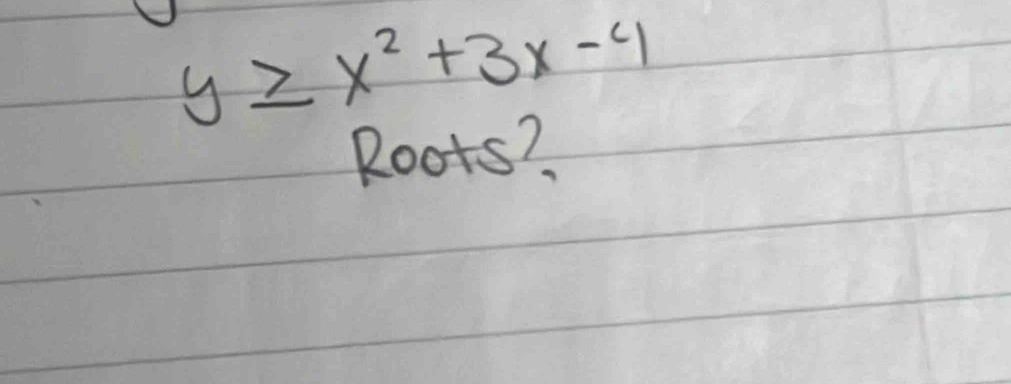 y ≥ x² + 3x - 4
Roots?